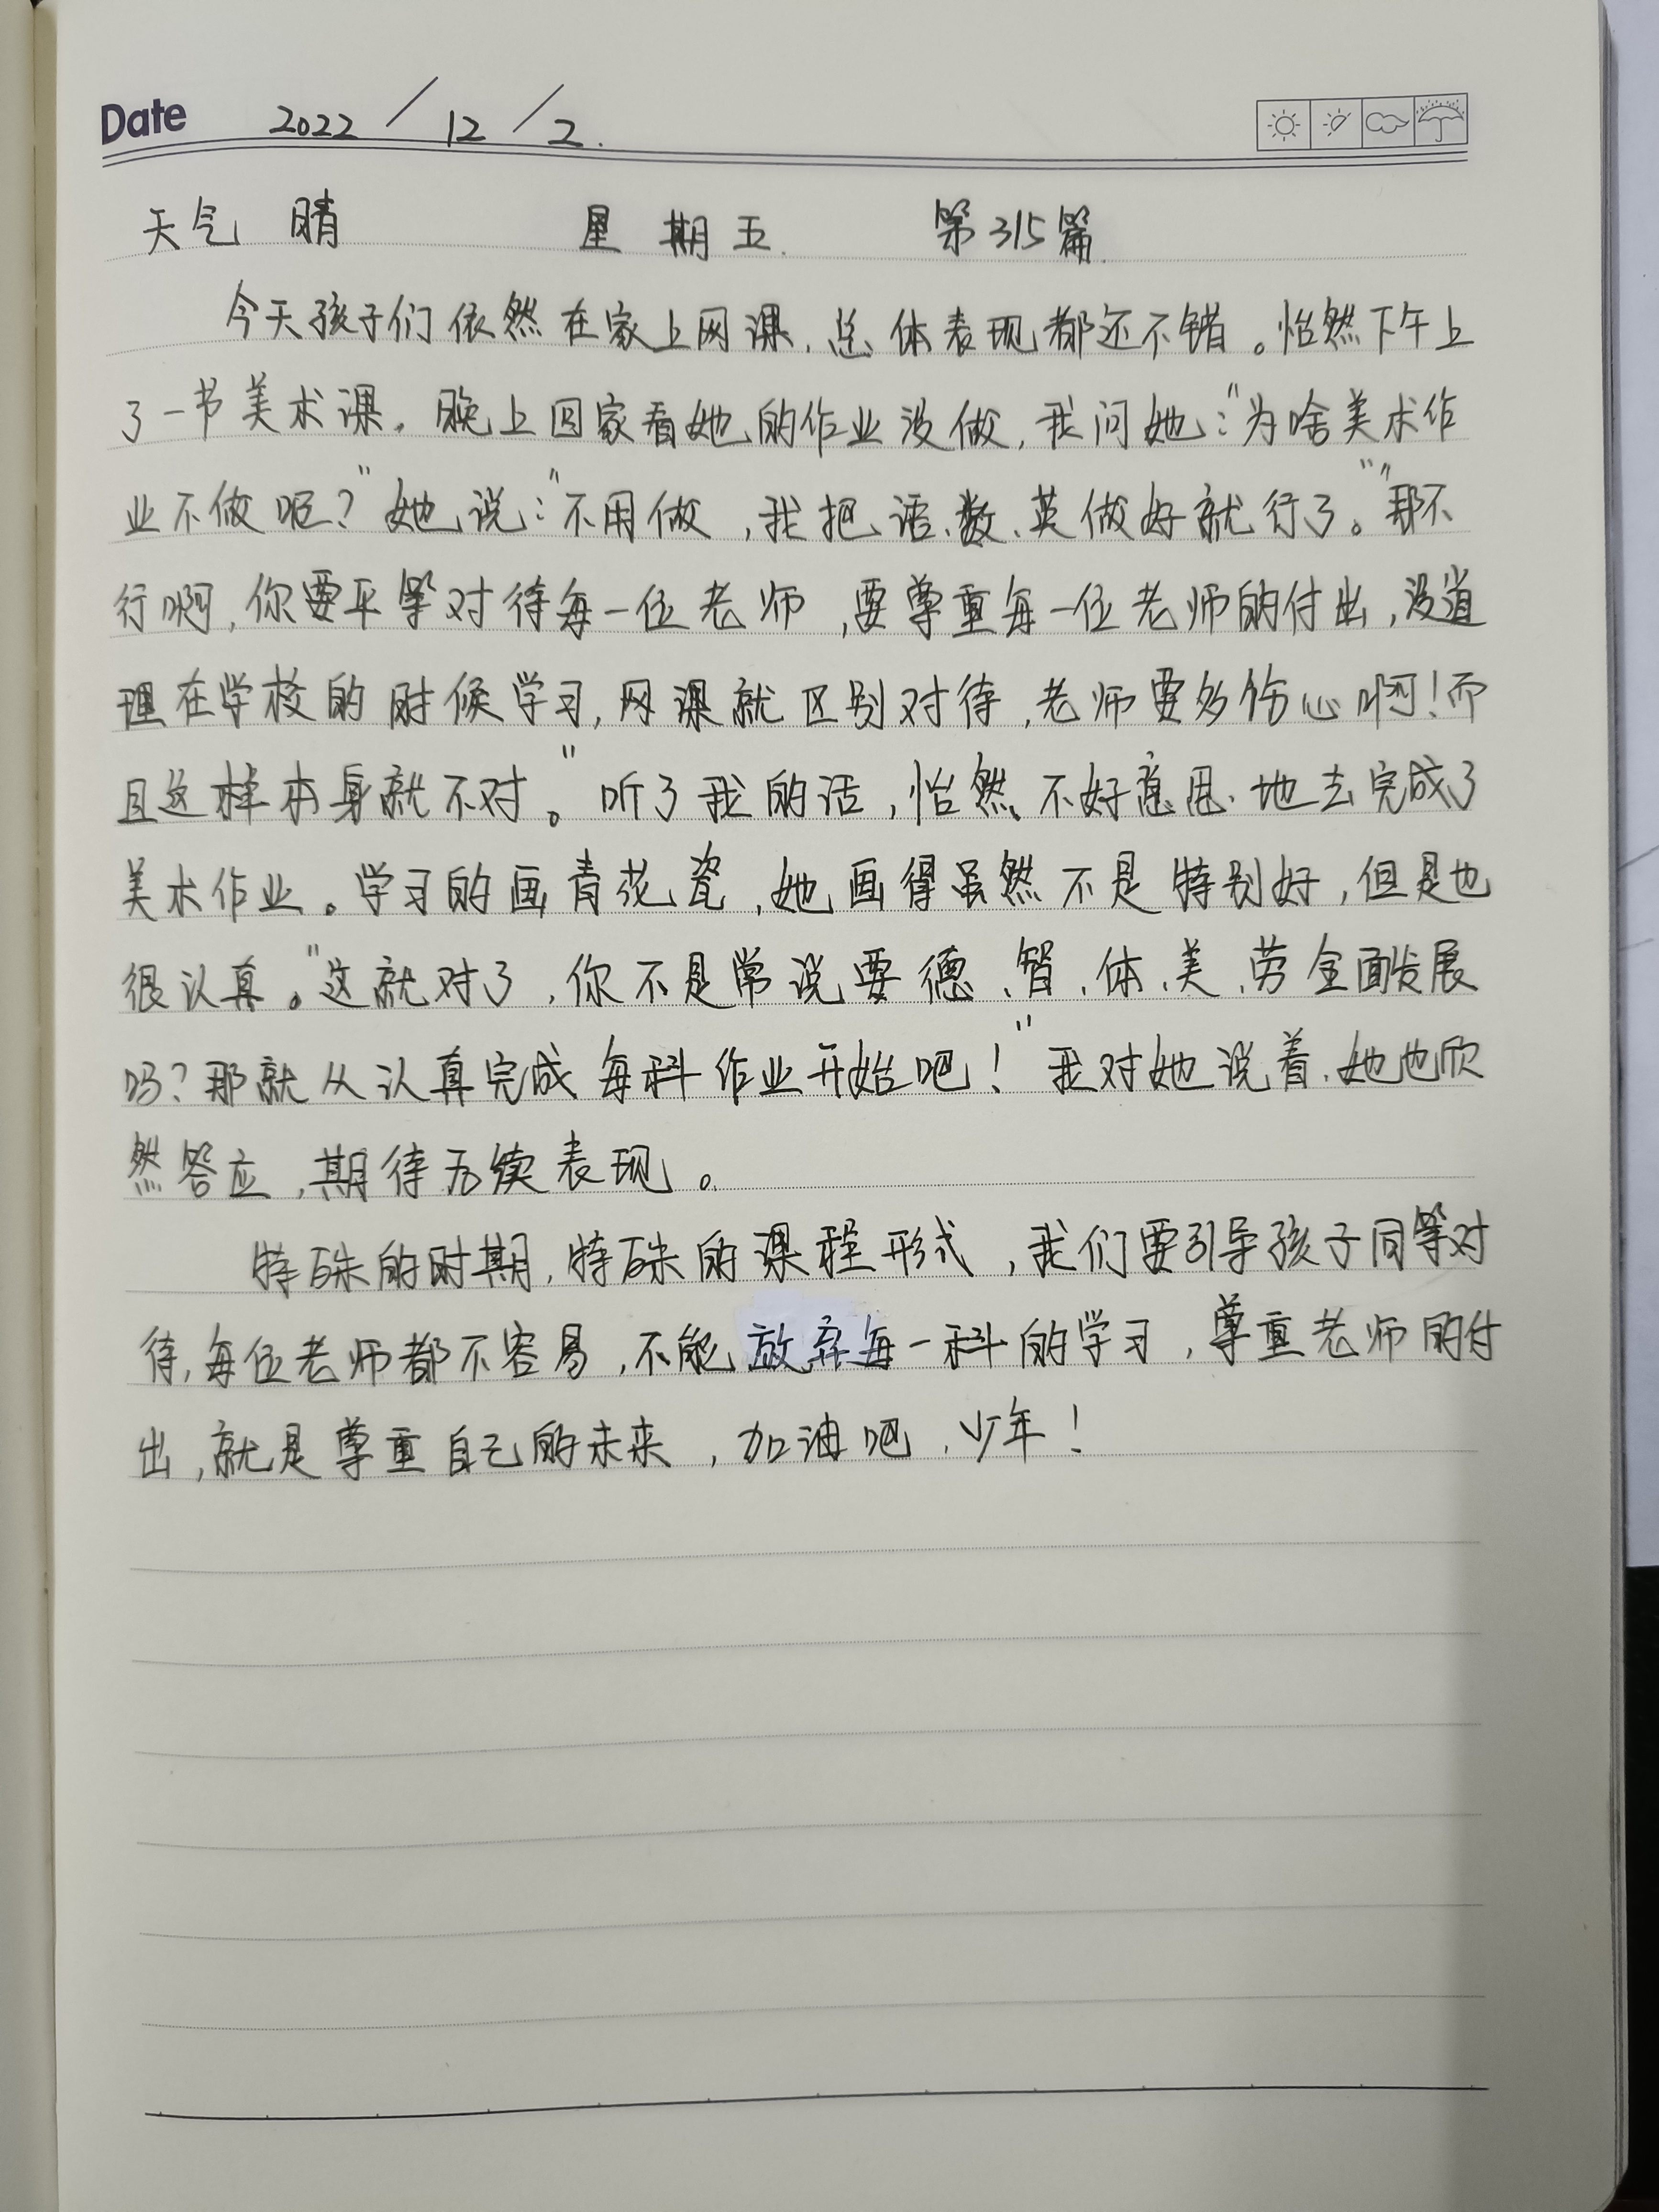 Date 2022/12/2.
天气 晴 星期五. 第315篇.
今天孩子们依然在家上网课，总体表现都还不错。怡然下午上
了一节美术课，晚上回家看她的作业没做，我问她：“为啥美术作
业不做呢？”她说：“不用做，我把语、数、英做好就行了。”“那不
行啊，你要平等对待每一位老师，要尊重每一位老师的付出，没道
理在学校的时候学习，网课就区别对待，老师要多伤心啊！而
且这样本身就不对。”听了我的话，怡然不好意思地去完成了
美术作业。学习的画青花瓷，她画得虽然不是特别好，但是也
很认真。“这就对了，你不是常说要德、智、体、美、劳全面发展
吗？那就从认真完成每科作业开始吧！”我对她说着，她也欣
然答应，期待后续表现。
特殊的时期，特殊的课程形式，我们要引导孩子同等对
待，每位老师都不容易，不能放弃每一科的学习，尊重老师的付
出，就是尊重自己的未来，加油吧，少年！